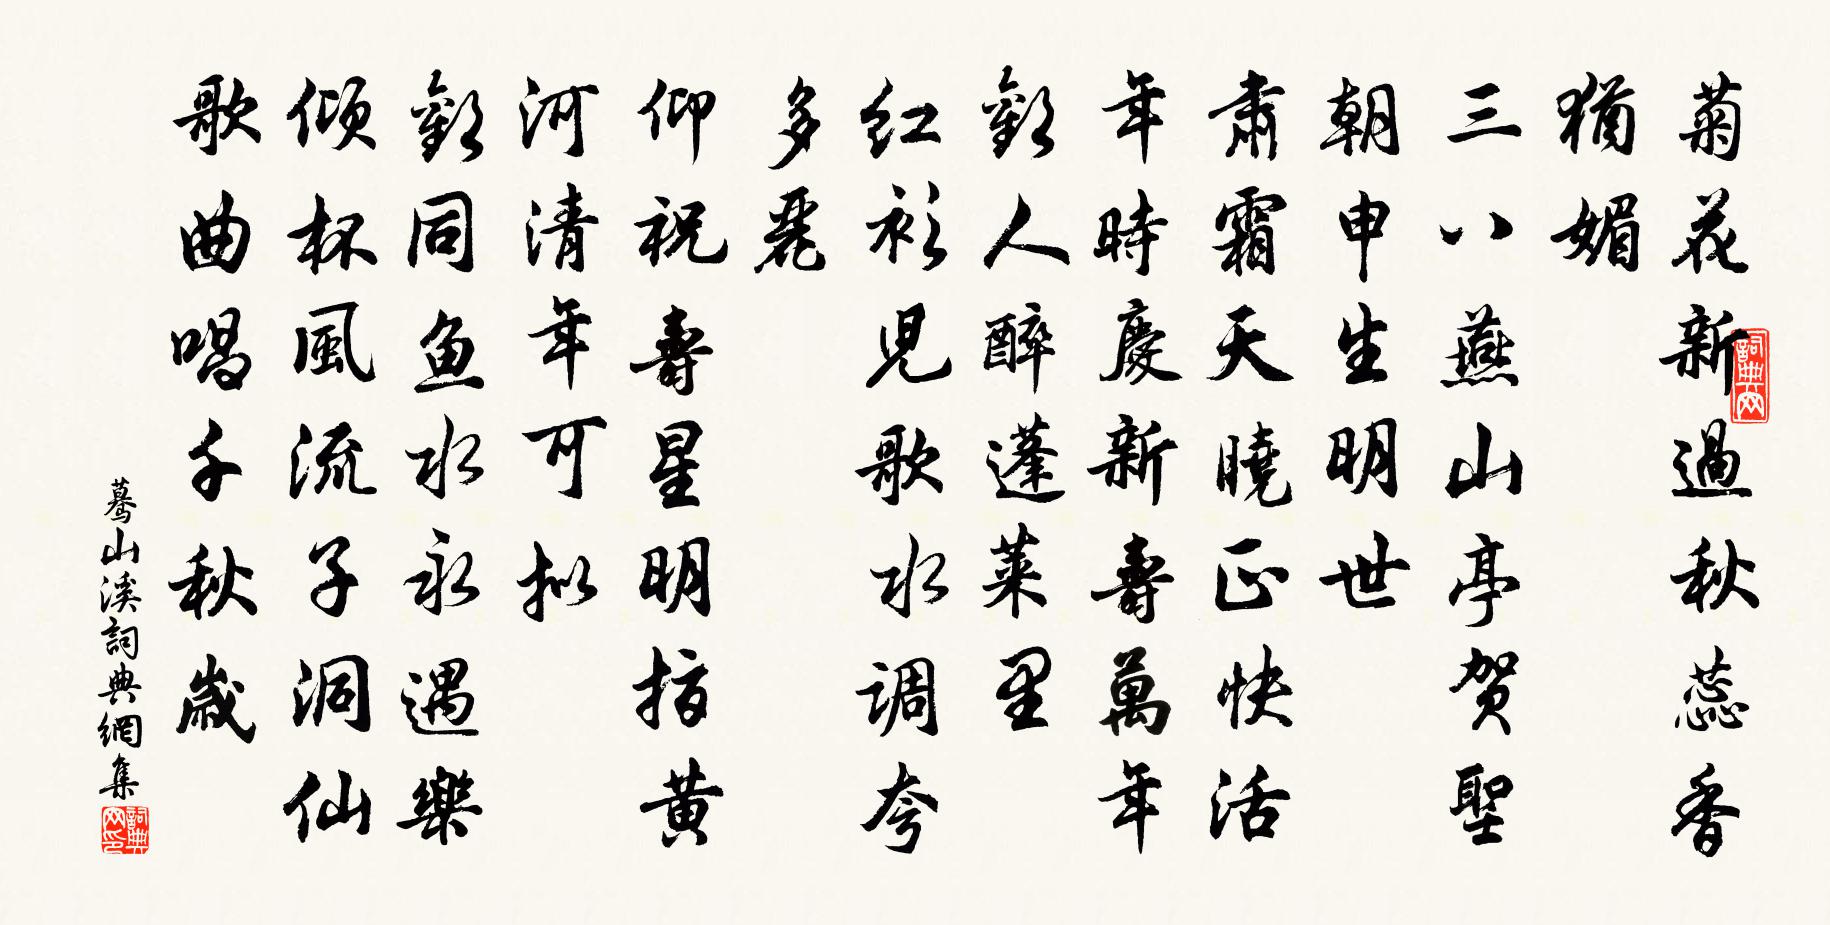 菊花新過秋蕊香
猶媚
三八燕山亭贺聖
朝申生明世
肅霜天曉正快活
年時慶新壽萬年
歡人醉蓬莱里
红衫児歌水调夸
多麗
仰祝壽星明指黄
河清年可拟
歡同鱼水永遇樂
傾杯風流子洞仙
歌曲唱千秋歲
蓦山溪詞典網集
詞典网
詞典网印